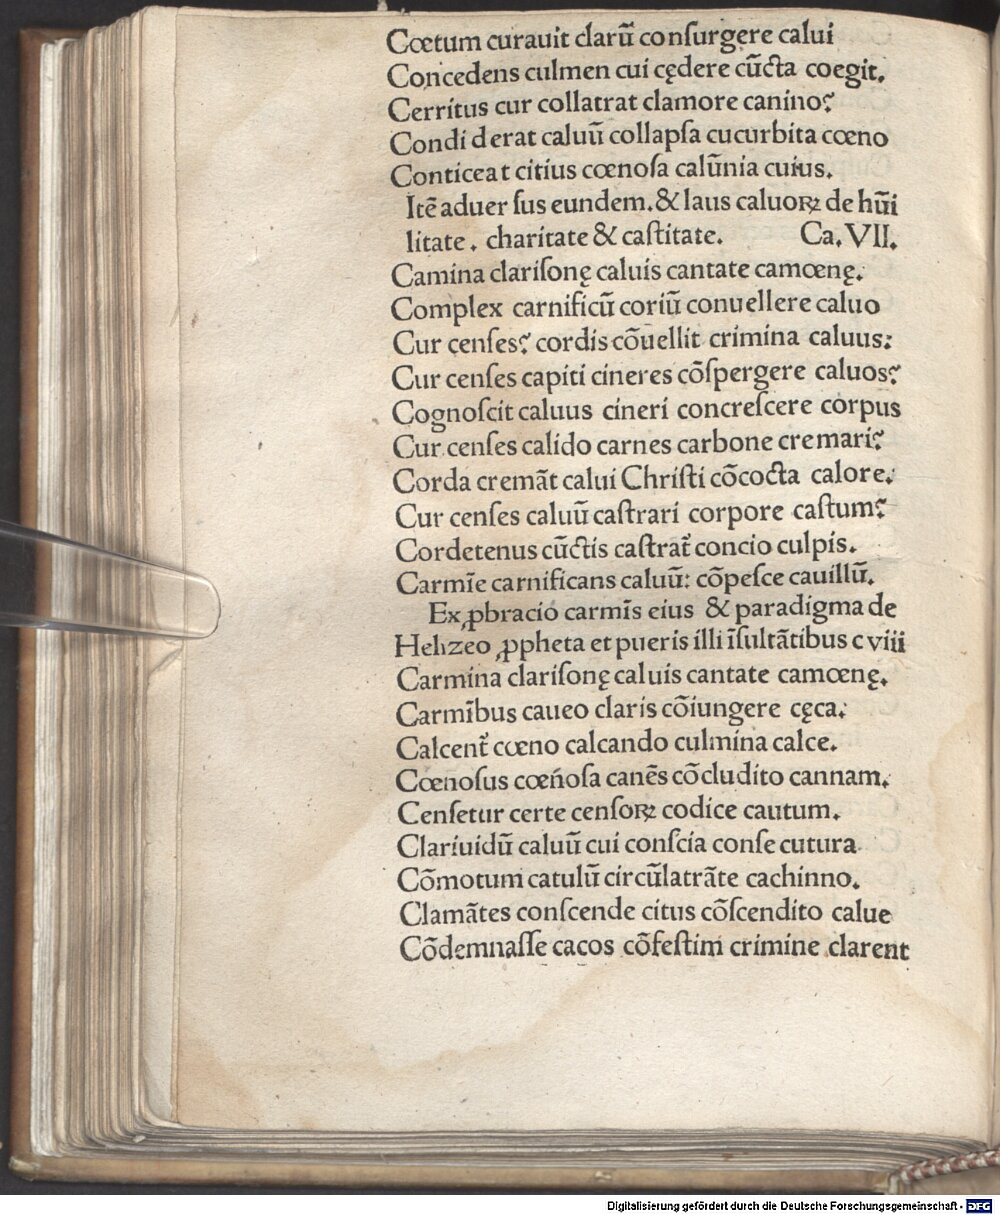 Cœtum curauit clarū conſurgere calui
Concedens culmen cui cędere cūcta coegit.
Cerritus cur collatrat clamore canino?
Condi derat caluū collapſa cucurbita cœno
Conticeat citius cœnoſa calūnia cuius.
Itē aduer ſus eundem. & laus caluoꝝ de hūi
litate. charitate & caſtitate. Ca. VII.
Camina clariſonę caluis cantate camœnę.
Complex carnificū coriū conuellere caluo
Cur cenſes? cordis cōuellit crimina caluus:
Cur cenſes capiti cineres cōſpergere caluos?
Cognoſcit caluus cineri concreſcere corpus
Cur cenſes calido carnes carbone cremari?
Corda cremāt calui Chriſti cōcocta calore.
Cur cenſes caluū caſtrari corpore caſtum?
Cordetenus cūctis caſtrat̃ concio culpis.
Carmīe carnificans caluū: cōpeſce cauillū.
Exꝓbracio carmīs eius & paradigma de
Helizeo ꝓpheta et pueris illi īſultātibus c viii
Carmina clariſonę caluis cantate camœnę.
Carmībus caueo claris cōiungere cęca.
Calcent̃ cœno calcando culmina calce.
Cœnoſus cœnoſa canēs cōcludito cannam.
Cenſetur certe cenſoꝝ codice cautum.
Clariuidū caluū cui conſcia conſe cutura
Cōmotum catulū circūlatrāte cachinno.
Clamātes conſcende citus cōſcendito calue
Cōdemnaſſe cacos cōfeſtim crimine clarent
Digitalisierung gefördert durch die Deutsche Forschungsgemeinschaft - DFG